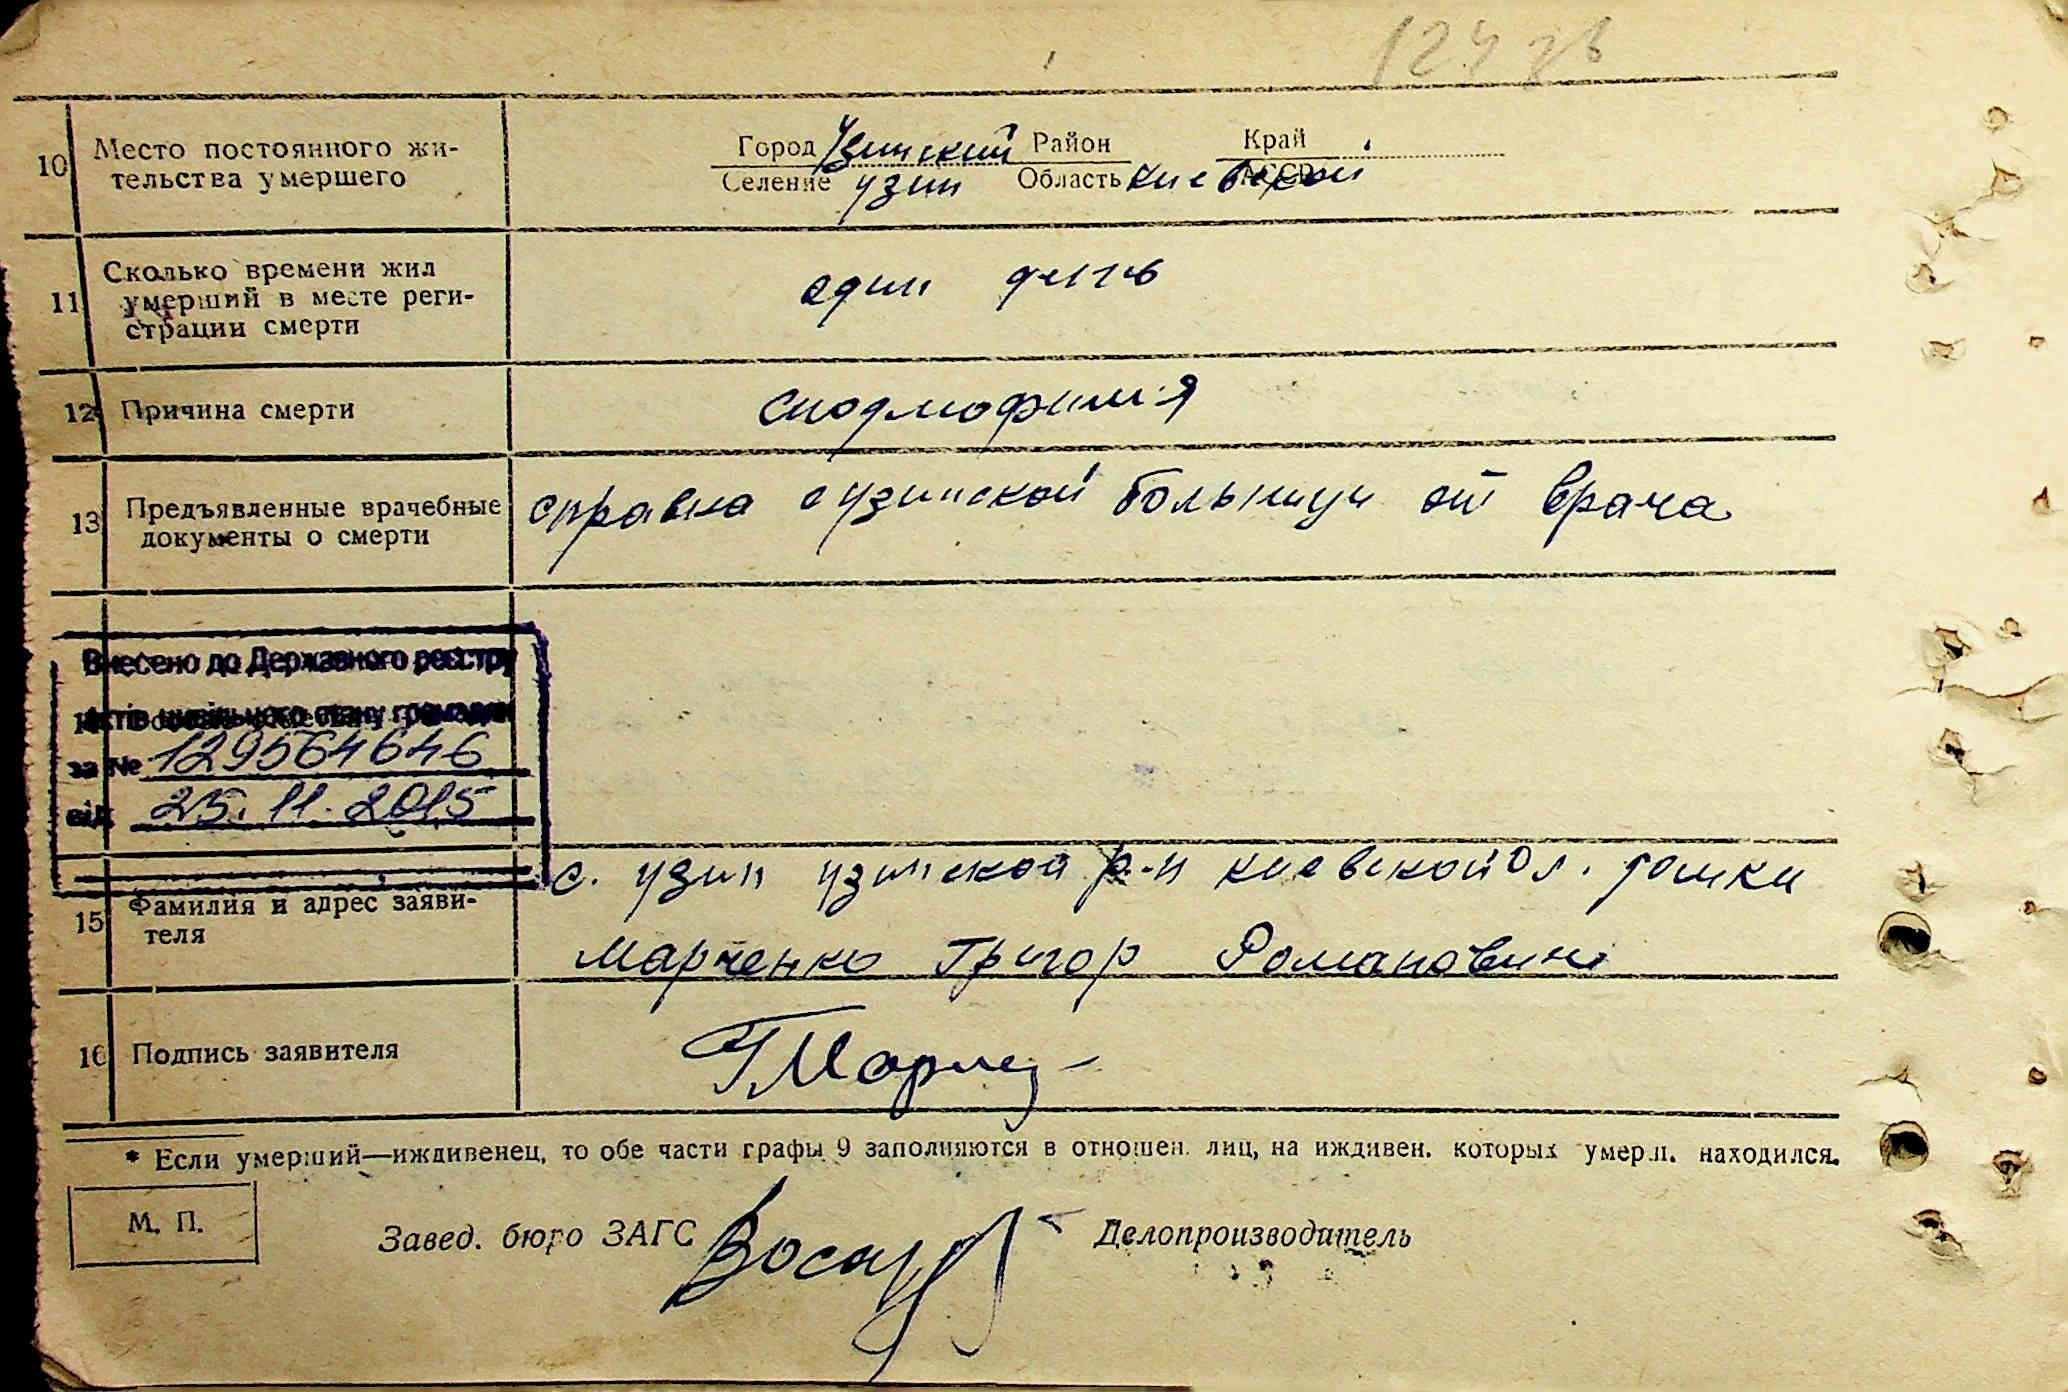 124
10 Место постоянного жи-
тельства умершего
Город Узинский Район Край
Селение Узин Область Киевской АССР
11 Сколько времени жил
умерший в месте реги-
страции смерти
один день
12 Причина смерти
13 Предъявленные врачебные
документы о смерти
справка с узинской больници от врача
Внесено до Державного реєстру
актів цивільного стану громадян
за № 129564646
від 25.11.2015
15 Фамилия и адрес заяви-
теля
с. узин узинской р-н киевской Ол.
Марченко Григор Романович
16 Подпись заявителя
* Если умерший—иждивенец, то обе части графы 9 заполняются в отношен. лиц, на иждивен. которых умерл. находился.
М. П.
Завед. бюро ЗАГС Делопроизводитель